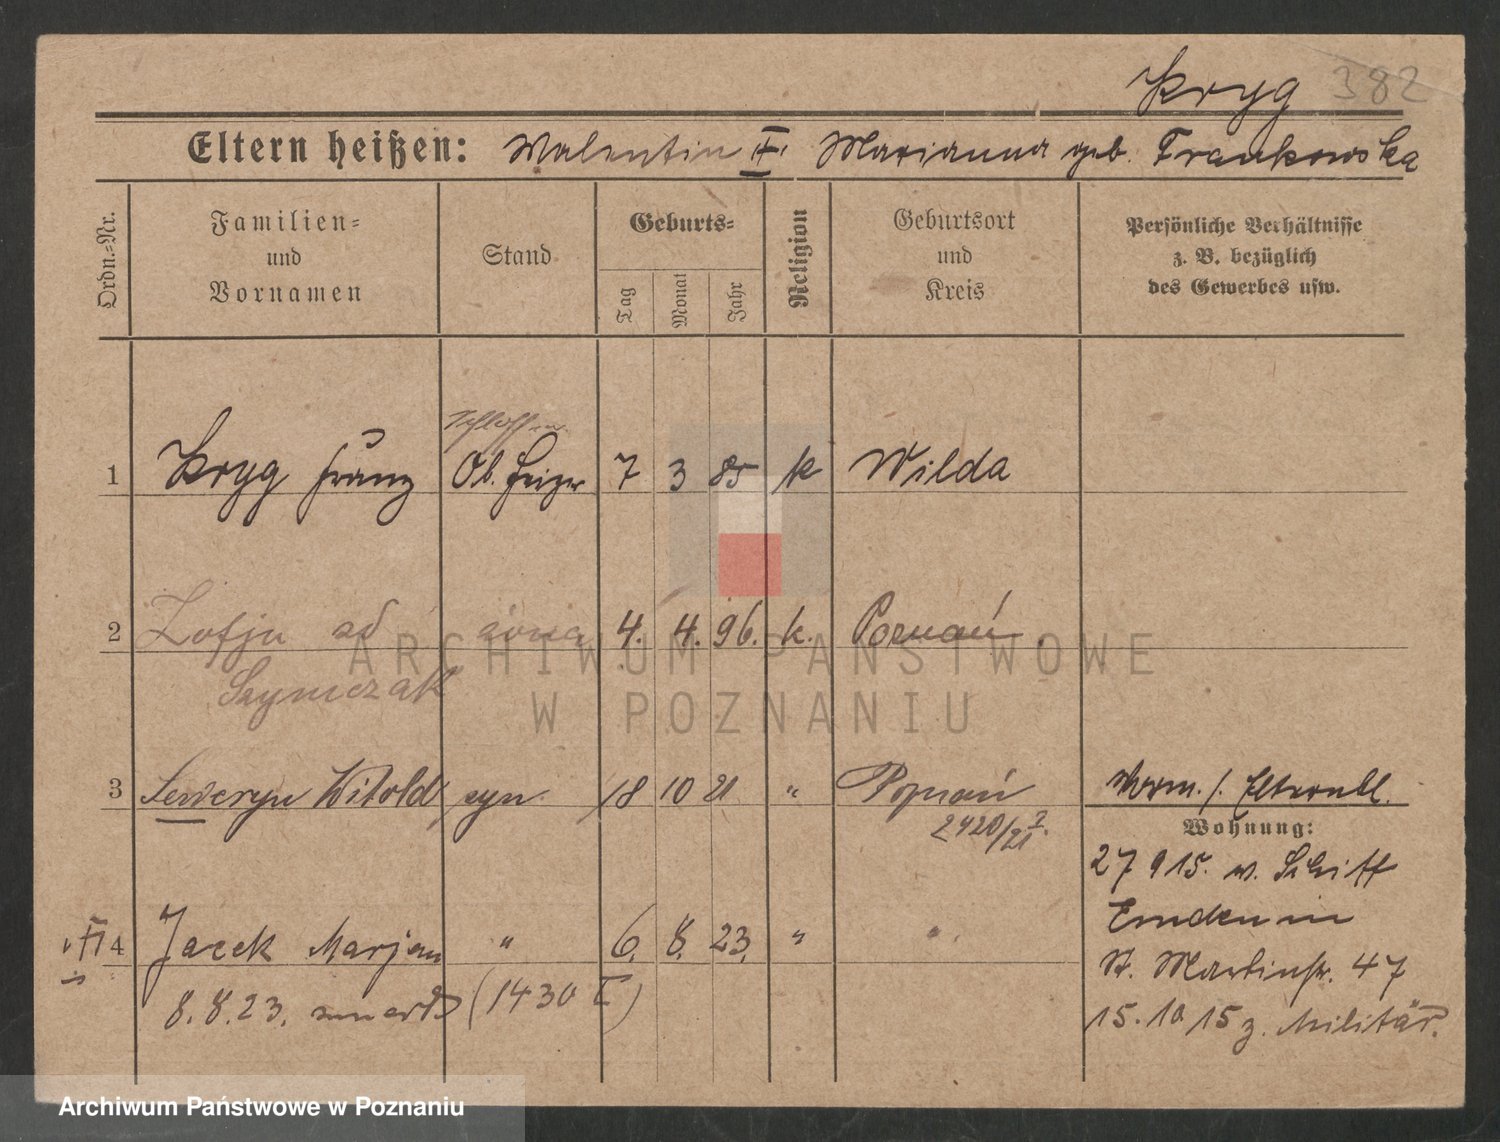 Kryg 382
Eltern heißen: Walentin II. Marianna geb. Frankowska
Ordn.-Nr.
Familien-
und
Vornamen
Stand
Geburts-
Tag
Monat
Jahr
Religion
Geburtsort
und
Kreis
Persönliche Verhältnisse
z. B. bezüglich
des Gewerbes usw.
1 Kryg Franz Ob. Heizer 7 3 85 k Wilda
2 Zofja żona 4. 4. 96. k. Poznań
Szymczak
3 Seweryn Witold syn 18 10 21 " Poznań
2420/21
Elternbl.
Wohnung:
27 9 15. v. Schiff
Emden in
St. Martinstr. 47
15. 10 15 z. Militär.
4 Jacek Marjan " 6. 8. 23. " "
8. 8. 23. zmarł (1430 I)
ARCHIWUM PAŃSTWOWE
W POZNANIU
Archiwum Państwowe w Poznaniu